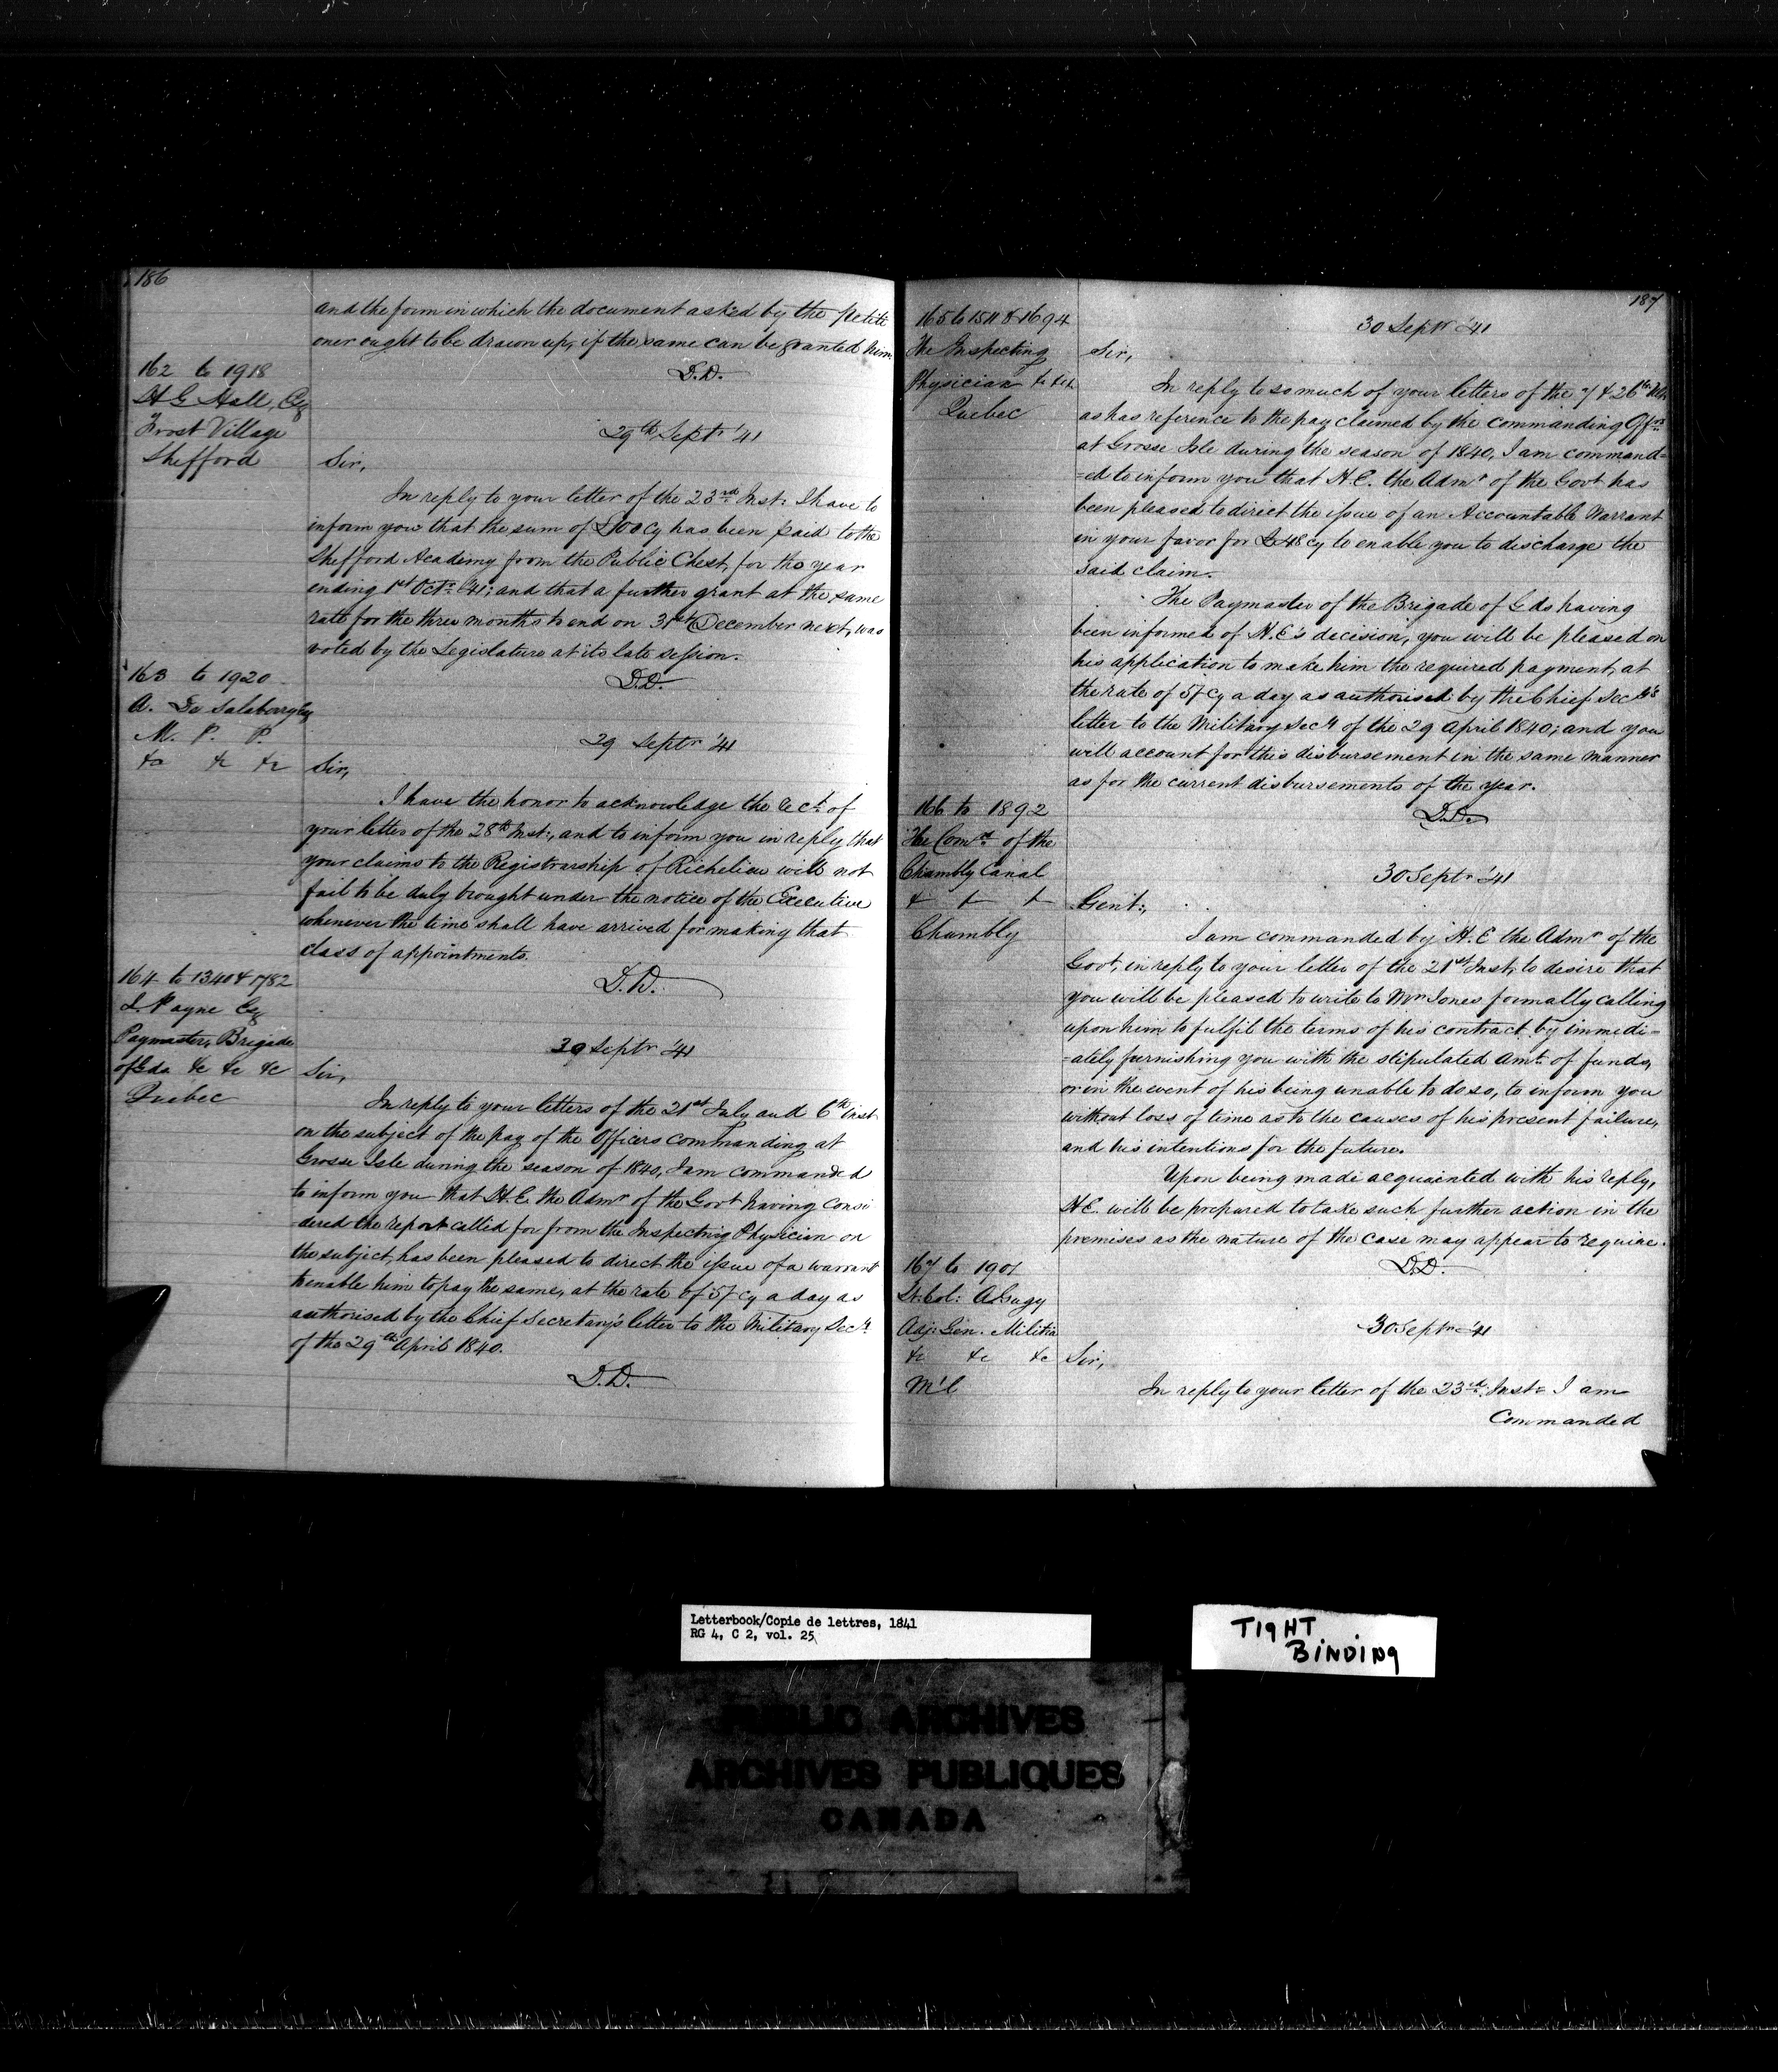 186
and the form in which the document asked by the petiti
oner ought to be drawn up, if the same can be granted him.
D.D.
162 to 1918
H G Hall, Esq
Frost Village
Shefford
29th Septr '41
Sir,
In reply to your letter of the 23rd Inst: I have to
inform you that the sum of £100 Cy has been paid to the
Shefford Academy from the Public Chest, for the year
ending 1st Octr '41; and that a further grant at the same
rate for the three months to end on 31st December next, was
voted by the Legislature at its late session.
D.D.
163 to 1920
A. De Salaberry Esq
M. P. P.
&c &c &c
29 Septr '41
Sir,
I have the honor to acknowledge the rect. of
your letter of the 28th Inst:, and to inform you in reply that
your claims to the Registrarship of Richelieu will not
fail to be duly brought under the notice of the Executive
whenever the time shall have arrived for making that
class of appointments.
D.D.
164 to 1340 & 1782
Payne Esq
Paymaster, Brigade
of Gds &c &c &c
Quebec
30 Septr '41
Sir,
In reply to your letters of the 21st July and 6th inst
on the subject of the pay of the Officers commanding at
Grosse Isle during the season of 1840, I am commanded
to inform you that H.E. the Admr of the Govt having consi
dered the report called for from the Inspecting Physician on
the subject, has been pleased to direct the issue of a warrant
to enable him to pay the same, at the rate of 5/ Cy a day as
authorised by the Chief Secretary's letter to the Military Secy
of the 29th April 1840.
D.D.
187
165 to 1511 & 1694
The Inspecting
Physician &c &c
Quebec
30 Septr '41
Sir,
In reply to so much of your letters of the 7 & 26th
as has reference to the pay claimed by the commanding Ofrs
at Grosse Isle during the season of 1840, I am command=
=ed to inform you that H.E. the Admr of the Govt has
been pleased to direct the issue of an Accountable Warrant
in your favor for £48 cy to enable you to discharge the
said claim.
The Paymaster of the Brigade of Gds having
been informed of H.E's decision, you will be pleased on
his application to make him the required payment, at
the rate of 5/ Cy a day as authorised by the Chief Secy's
letter to the Military Secy of the 29 April 1840; and you
will account for this disbursement in the same manner
as for the current disbursements of the year.
D.D.
166 to 1892
The Comrs of the
Chambly Canal
& & &
Chambly
30 Septr '41
Gent:,
I am commanded by H.E the Admr of the
Govt, in reply to your letter of the 21st Inst, to desire that
you will be pleased to write to Mr Jones formally calling
upon him to fulfil the terms of his contract by immedi=
=ately furnishing you with the stipulated Amt of funds,
or in the event of his being unable to do so, to inform you
without loss of time as to the causes of his present failure,
and his intentions for the future.
Upon being made acquainted with his reply,
H.E. will be prepared to take such further action in the
premises as the nature of the case may appear to require.
D.D.
167 to 1901
Lt: Col: A Gugy
Adj: Gen. Militia
&c &c &c
M'l
30 Septr '41
Sir,
In reply to your letter of the 23rd Inst I am
Commanded
Letterbook/Copie de lettres, 1841
RG 4, C 2, vol. 25
TIGHT
BINDING
PUBLIC ARCHIVES
ARCHIVES PUBLIQUES
CANADA